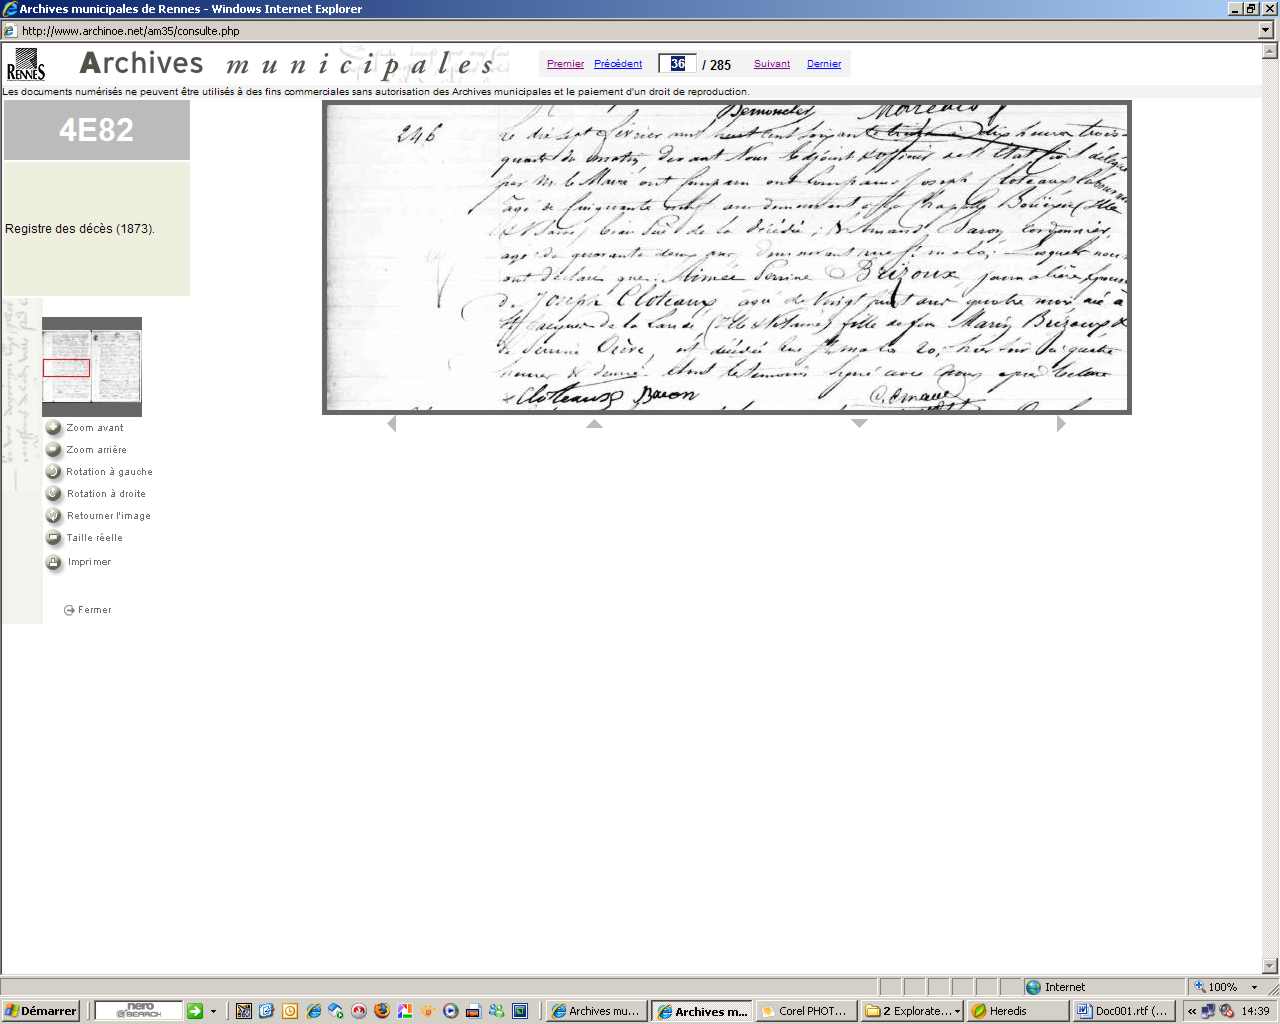 Archives municipales de Rennes - Windows Internet Explorer
http://www.archinoe.net/am35/consulte.php
RENNES
Archives municipales
Premier Précédent 36 / 285 Suivant Dernier
Les documents numérisés ne peuvent être utilisés à des fins commerciales sans autorisation des Archives municipales et le paiement d'un droit de reproduction.
4E82
Registre des décès (1873).
246
Le dix sept février mil huit cent soixante treize à dix heures trois
quart du matin, devant Nous adjoint officier de l'Etat civil délégué
par M. le Maire ont comparu Joseph Cloteaux laboureur
âgé de Cinquante neuf ans demeurant à la Chapelle Bouëxic (Ille
& Vilaine) beau père de la décédée, & Armand Baron, cordonnier,
agé de quarante deux ans, demeurant rue St malo; Lesquels nous
ont déclaré que Aimée Perrine Brizoux, journalière, épouse
de Joseph Cloteaux âgée de Vingt huit ans quatre mois née à
St Jacques de la Lande, (Ille & Vilaine) fille de feu Marie Brizoux &
de Perrine est décédée rue St malo 20, hier soir à quatre
heures & demie. Et ont les temoins signé avec Nous après lecture
Cloteaux Baron
Zoom avant
Zoom arrière
Rotation à gauche
Rotation à droite
Retourner l'image
Taille réelle
Imprimer
Fermer
Internet
100%
Démarrer
nero SEARCH
Archives mu...
Archives m...
Corel PHOT...
2 Explorate...
Heredis
Doc001.rtf (...
14:39